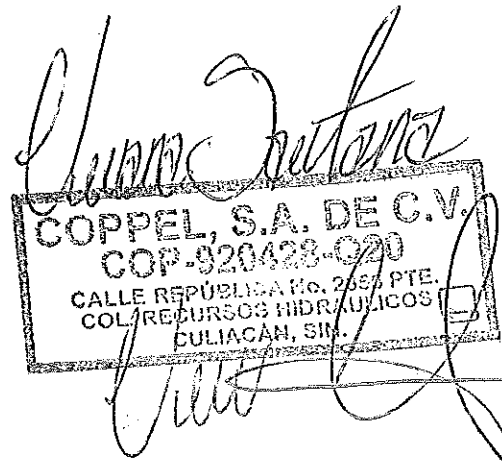 Santana
COPPEL, S.A. DE C.V.
COP-920428-Q20
CALLE REPÚBLICA No. 2855 PTE.
COL. RECURSOS HIDRAULICOS
CULIACÁN, SIN.